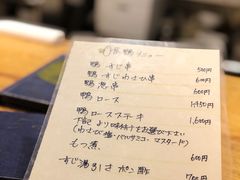 鴨メニュー
鴨 すじ串 500円
鴨 すじわさび串 600円
鴨 葱串 600円
鴨 ロース 1,450円
鴨 ロースステキ 1,600円
下記より味付けをお選び下さい
(わさび塩・バルサミコ・マスタード)
もつ煮 600円
すじ湯引き ポン酢 700円